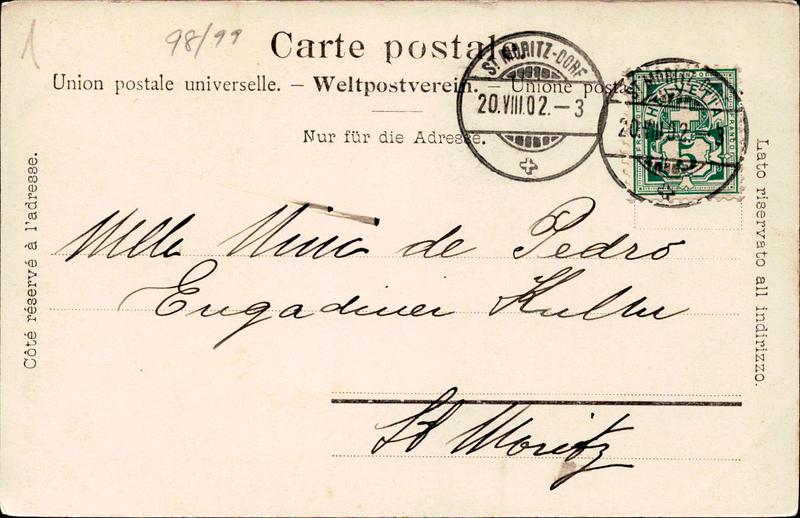 98/99
Carte postale
Union postale universelle. – Weltpostverein. – Unione posta
Nur für die Adresse.
ST MORITZ-DORF
20.VIII.02.–3
HELVETIA
FRANCO
5
Côté réservé à l'adresse.
Lato riservato all indirizzo.
Mlle Nina de Pedro
Engadiner Kulm
St Moritz